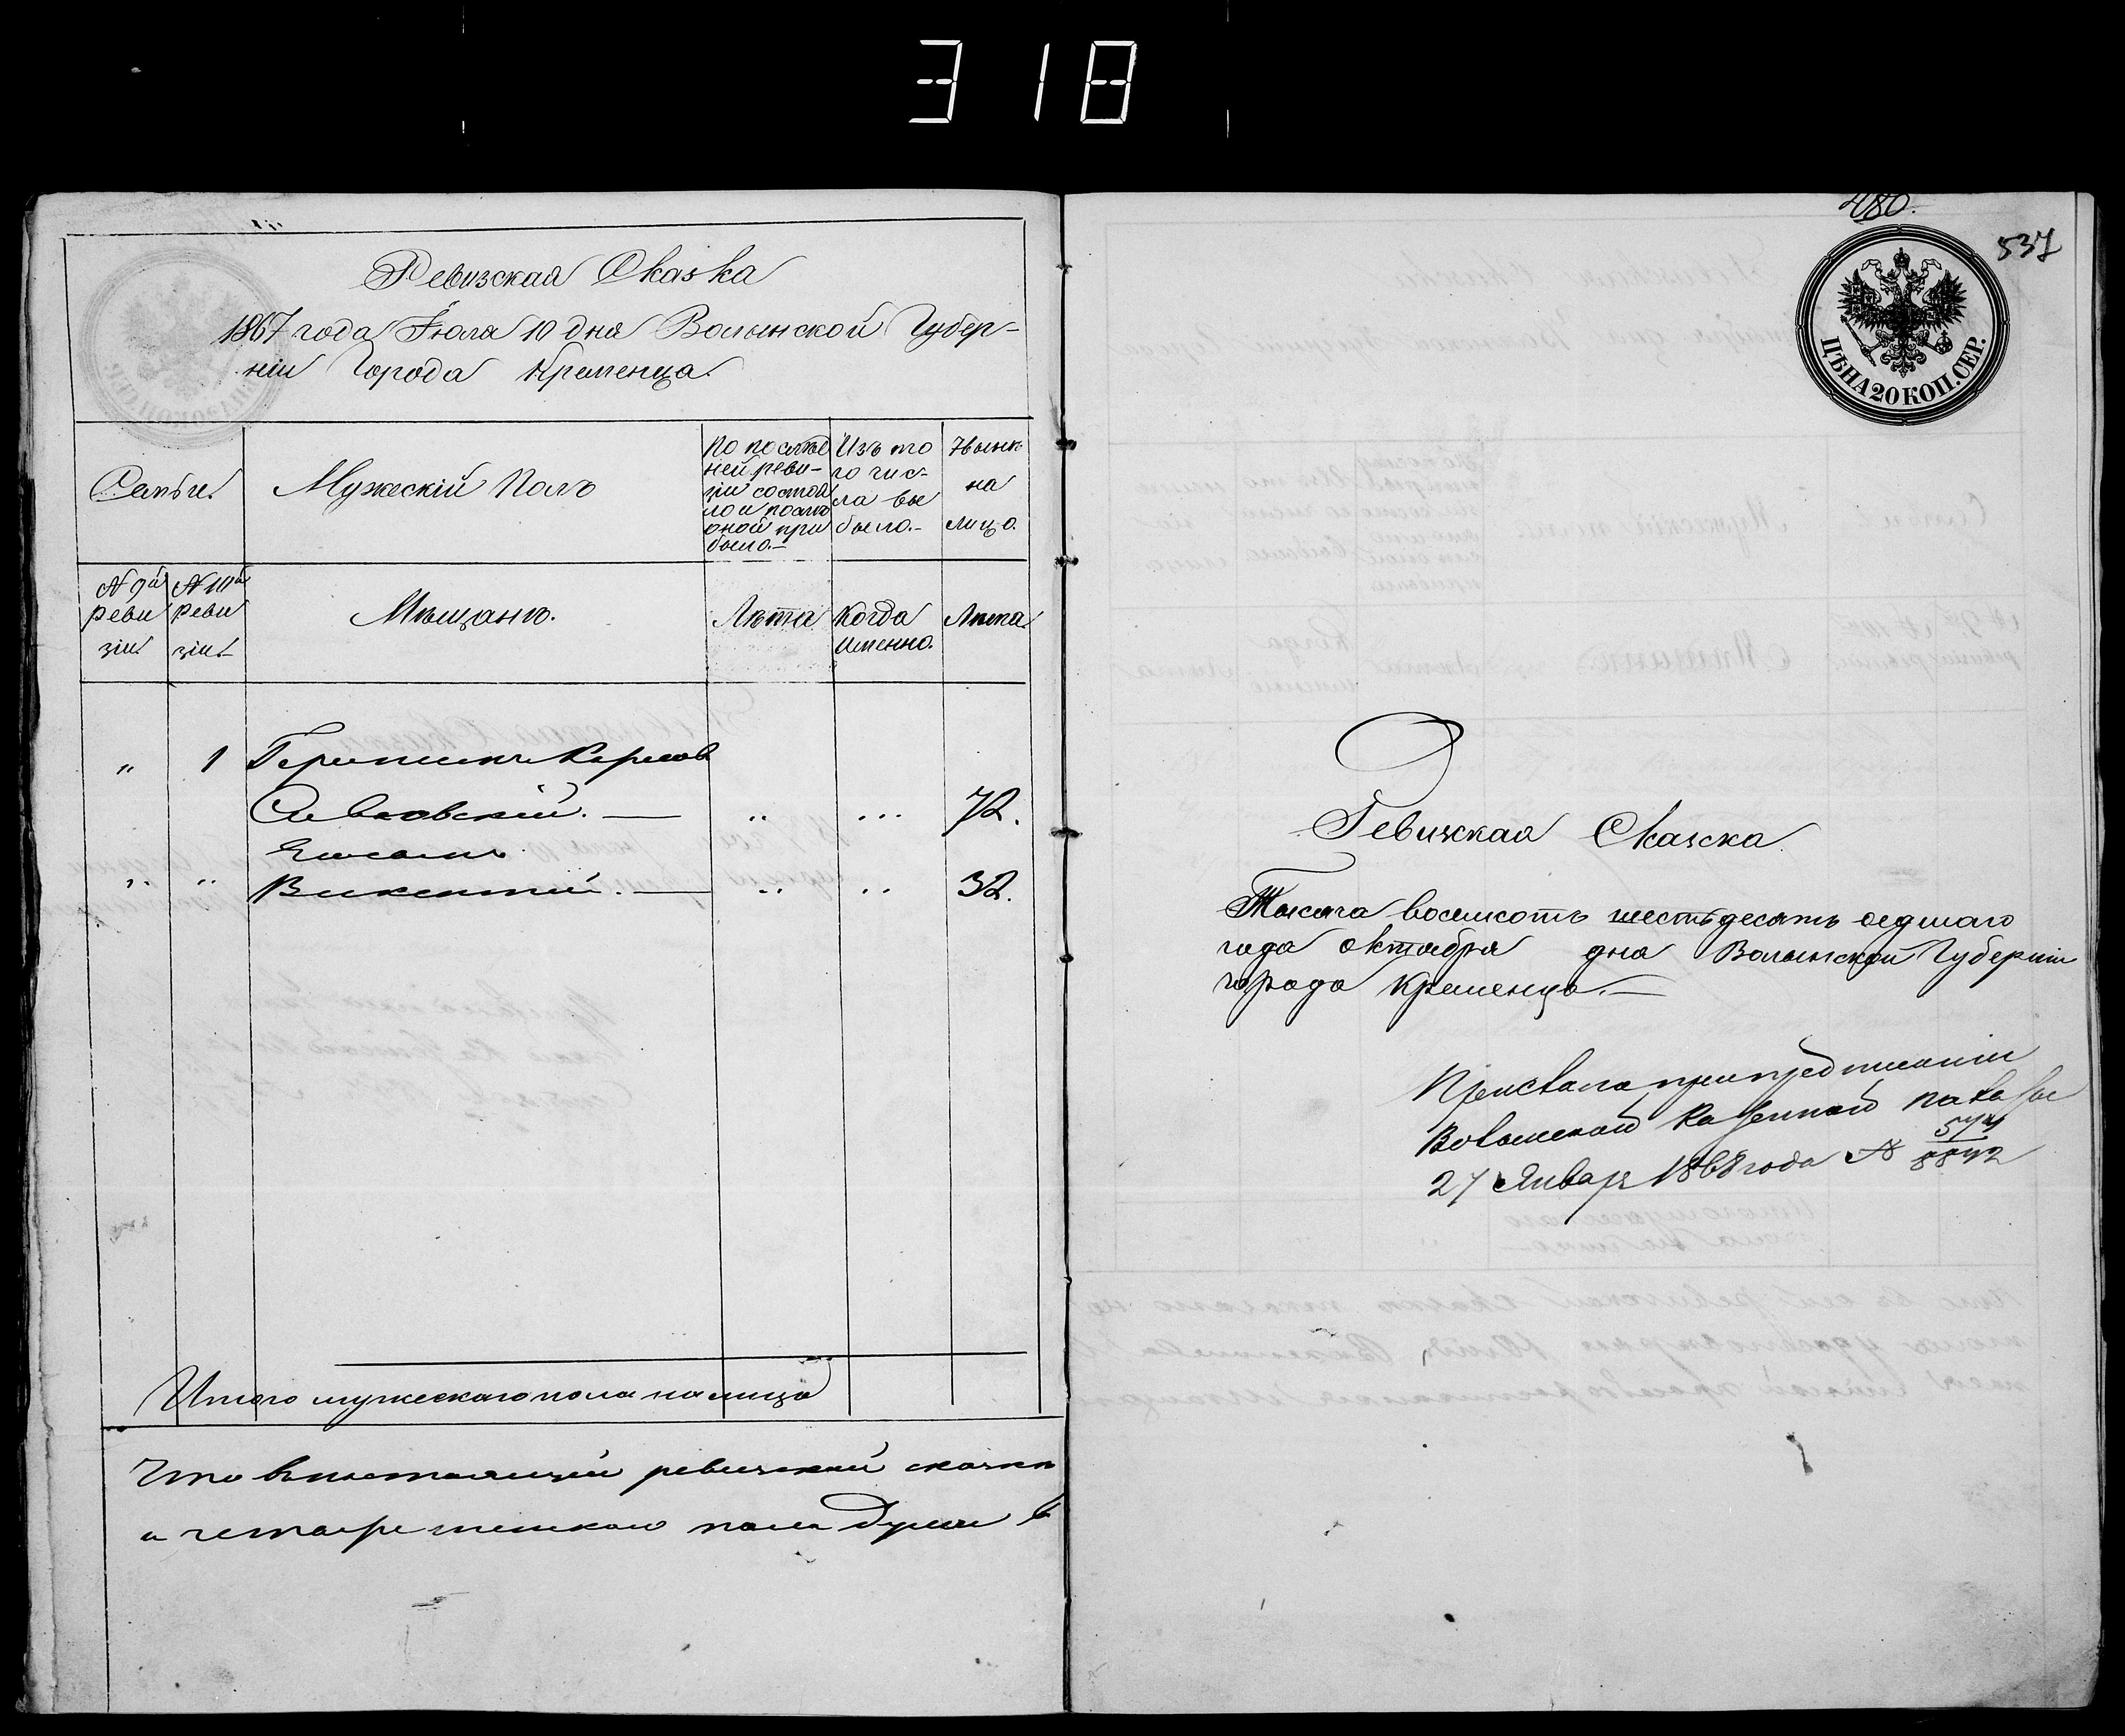 318
Ревизская Сказка
1867 года Іюля 10 дня Волынской Губер-
ніи Города Кременца.
Семьи
Мужескій Полъ
По послѣд
ней реви-
зіи состоя
ло и послѣ
оной при
было.-
Изъ то
го чис-
ла вы
было.-
Нынѣ
на
лицо.
№ 9й
реви
зіи
№ 10й
реви
зіи
Мѣщанъ.
Лѣта
Когда
именно.
Лѣта
" 1
Савковскій. — .. ... 72.
.. .. Викентій. — .. .. 32.
Итого мужескаго пола на лицо
Что въ настоящей ревизской сказкѣ
и четыре женскаго пола души в
480.
537
ЦѢНА 20 КОП. СЕР.
Ревизкая Сказка
Тысяча восемсотъ шестьдесятъ седмаго
года октября дня Волынской Губерніи
города Кременца.—
Прислана при предписаніи
Волынской Казенной палаты
27 Январ 1868 года №